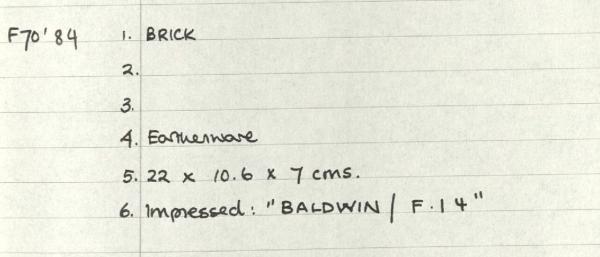 F70'84 1. BRICK
2.
3.
4. Earthenware
5. 22 x 10.6 x 7 cms.
6. Impressed: "BALDWIN / F.14"